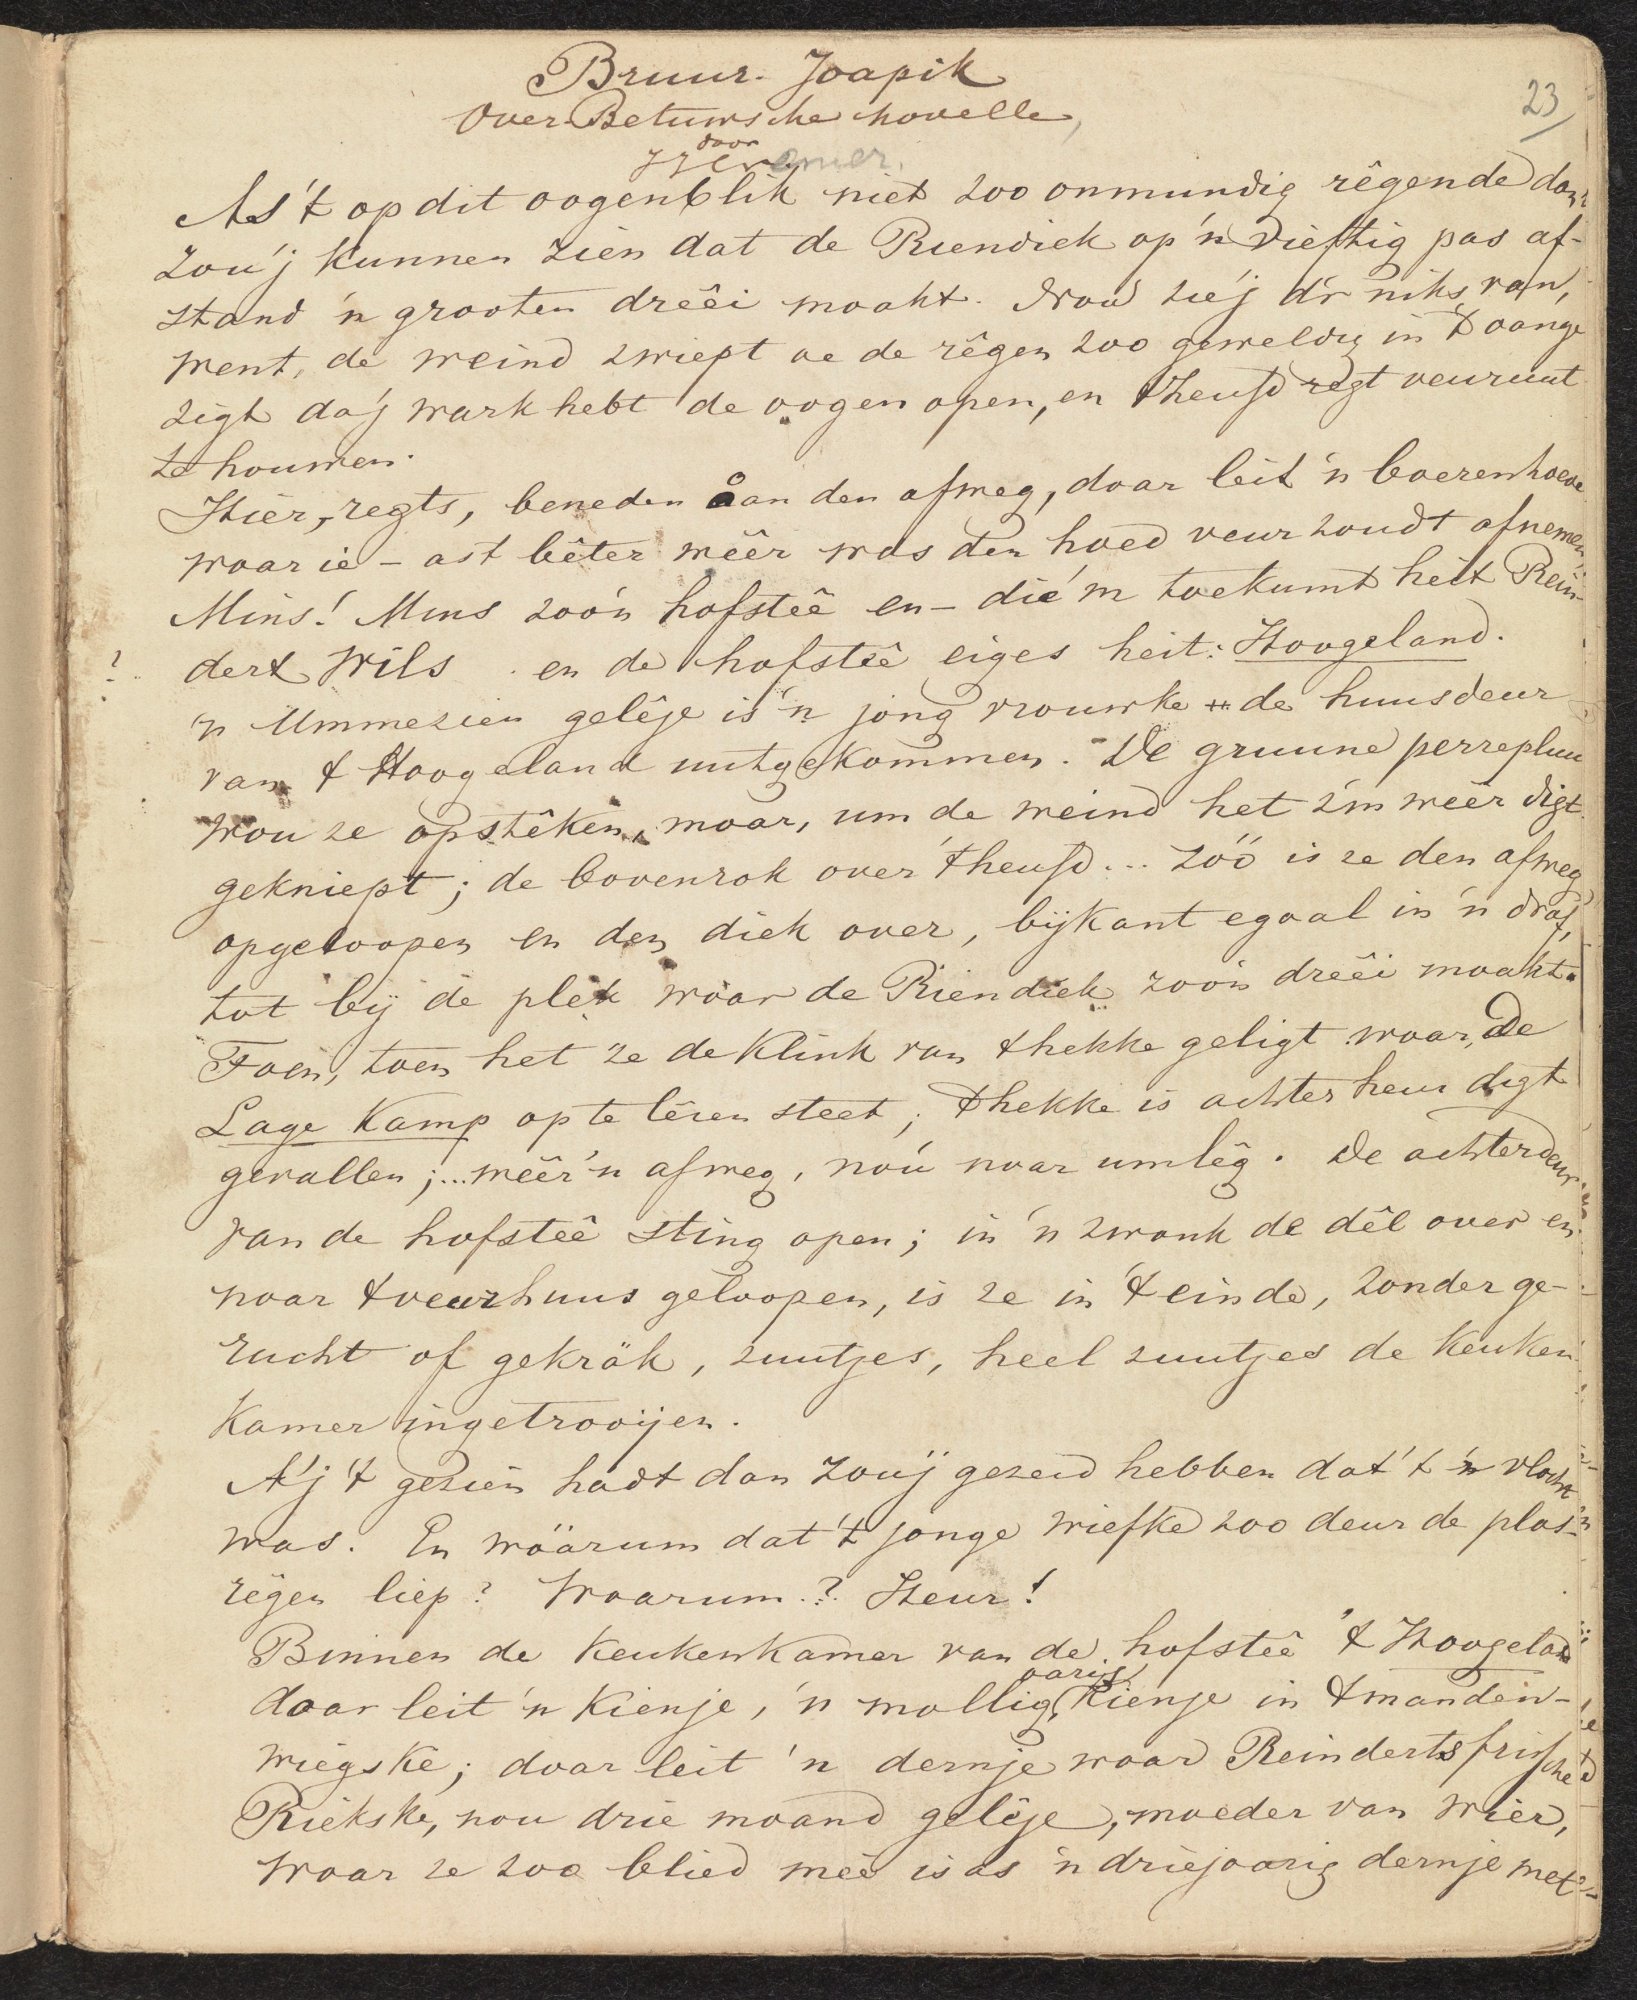 Bruur Joapik
Over-Betuwsche novelle,
23
door
JJ Cremer.
As 't op dit oogenblik niet zoo onmundig rêgende dan
zou'j kunnen zien dat de Riendiek op 'n vieftig pas af-
stand 'n grooten drêêi moakt. Nou zie'j d'r niks van,
went, de weind zwiept oe de rêgen zoo geweldig in 't oange
zigt da'j wark hebt de oogen open, en 't heufd regt veuruut
te houwen.
Hier, regts, beneden åan den afweg, doar leit 'n boerenhoeve
woar ie - as 't bêter wêêr was den hoed veur zoudt afnemen,
Mins! Mins zoo'n hofsteê en - die 'm toekumt heit Rein-
dert Wils . en de hofsteê eiges heit: Hoogeland.
?
'n Ummezien gelêje is 'n jong vrouwke de huusdeur
van 't Hoogeland uutgekommen. De gruune perrepluu
wou ze opstêken, moar, um de weind het z'm wêêr digt
gekniept; de bovenrok over 't heufd... zóó is ze den afweg
opgeloopen en den diek over, bijkant egoal in 'n draf,
tot bij de plek wöar de Riendiek zoo'n drêêi moakt.
Toen, toen het ze de klink van 't hekke geligt woar, De
Lage Kamp op te lêzen steet; 't hekke is achter heur digt
gevallen;... wêêr 'n afweg, nóu noar umlêg. De achterdeur
van de hofsteê sting open; in 'n zwank de dêl over en
noar 't veurhuus geloopen, is ze in 't einde, zonder ge-
rucht of gekräk, zuutjes, heel zuutjes de keuken
kamer ingetrooijen.
A'j 't gezien hadt dan zou'j gezeid hebben dat 't 'n vlocht
was. En wöarum dat 't jonge wiefke zoo deur de plas-
rêgen liep? Woarum..? Heur!
Binnen de keukenkamer van de hofsteê 't Hoogeland
aarig
doar leit 'n kienje, 'n mollig kienje in 't manden-
wiegske; doar leit 'n dernje woar Reinderts frissche
Riekske, nou drie moand gelêje, moeder van wier,
woar ze zoo blied meê is as 'n driejoarig dernje met